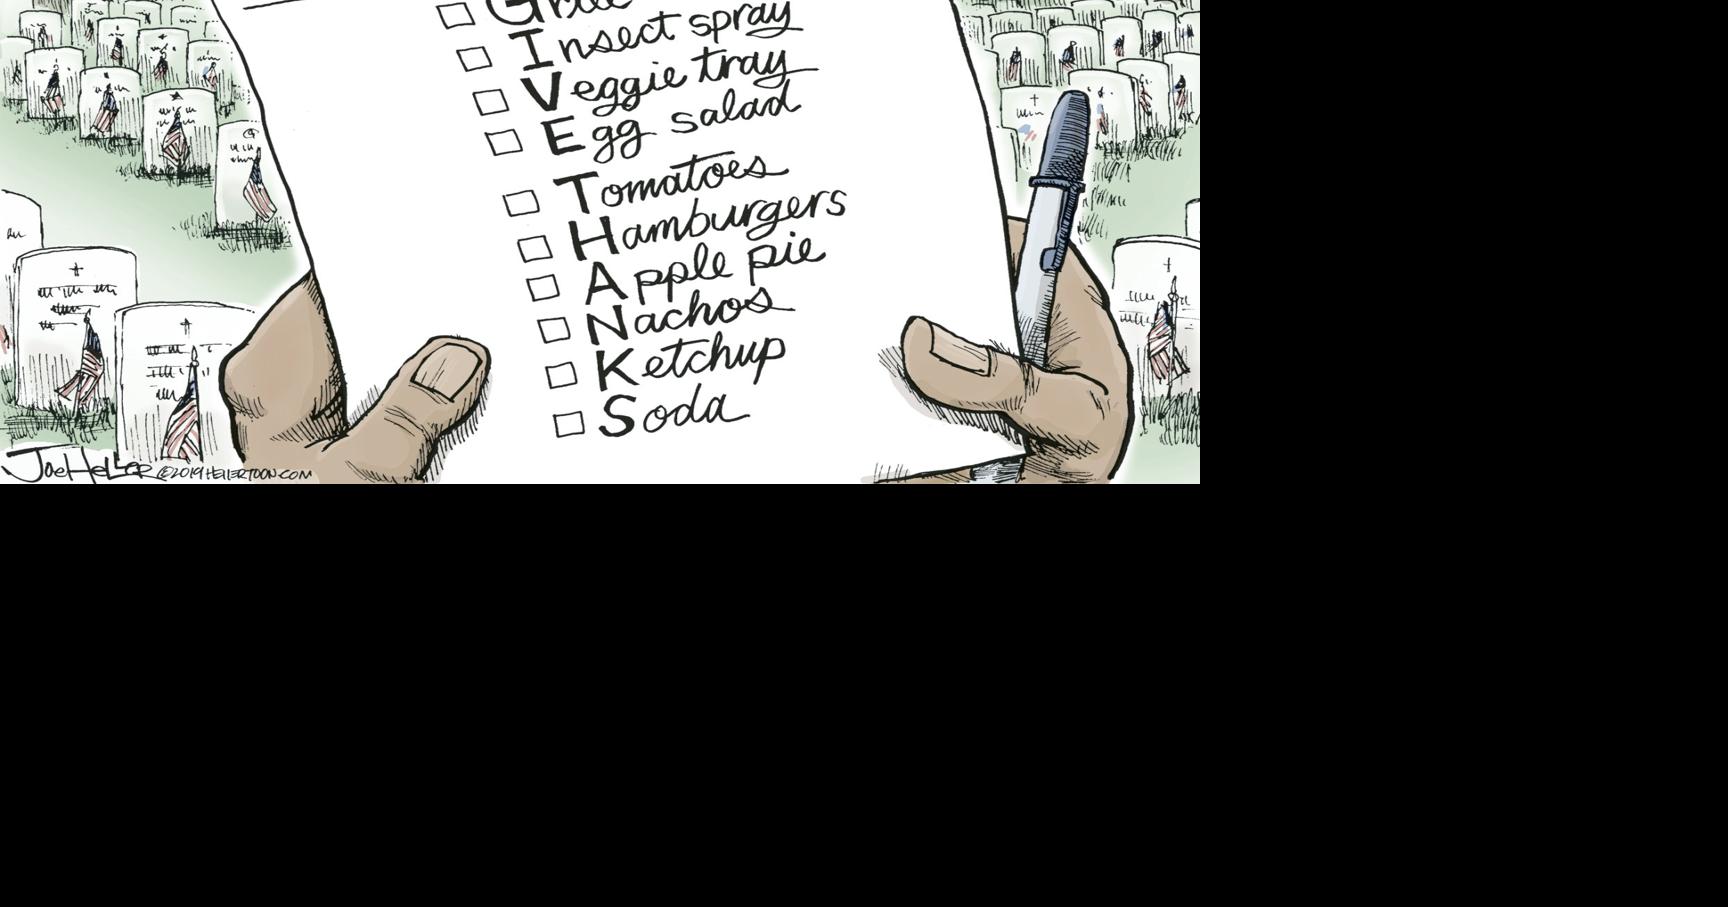 Insect spray
Veggie tray
Egg salad
Tomatoes
Hamburgers
Apple pie
Nachos
Ketchup
Soda
Joe Heller ©2019 HELLERTOON.COM